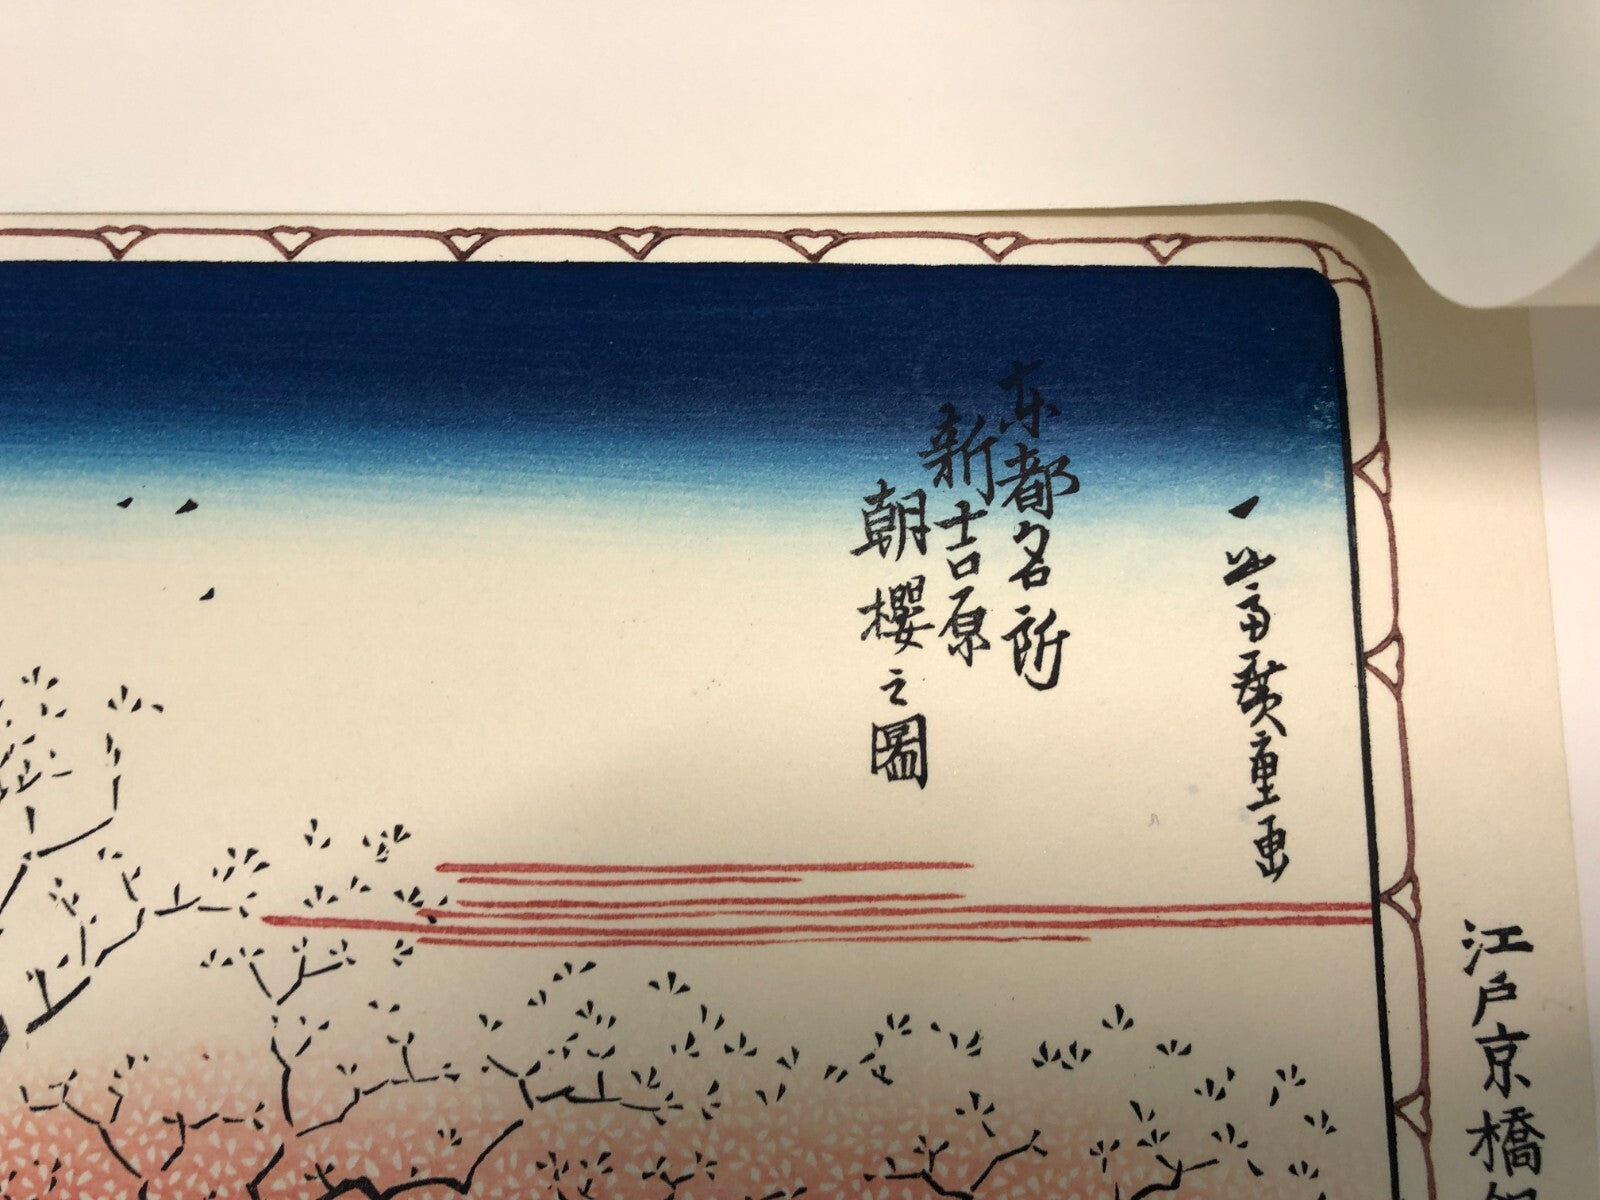 一幽斎廣重画
東都名所
新吉原
朝櫻之圖
江戸京橋